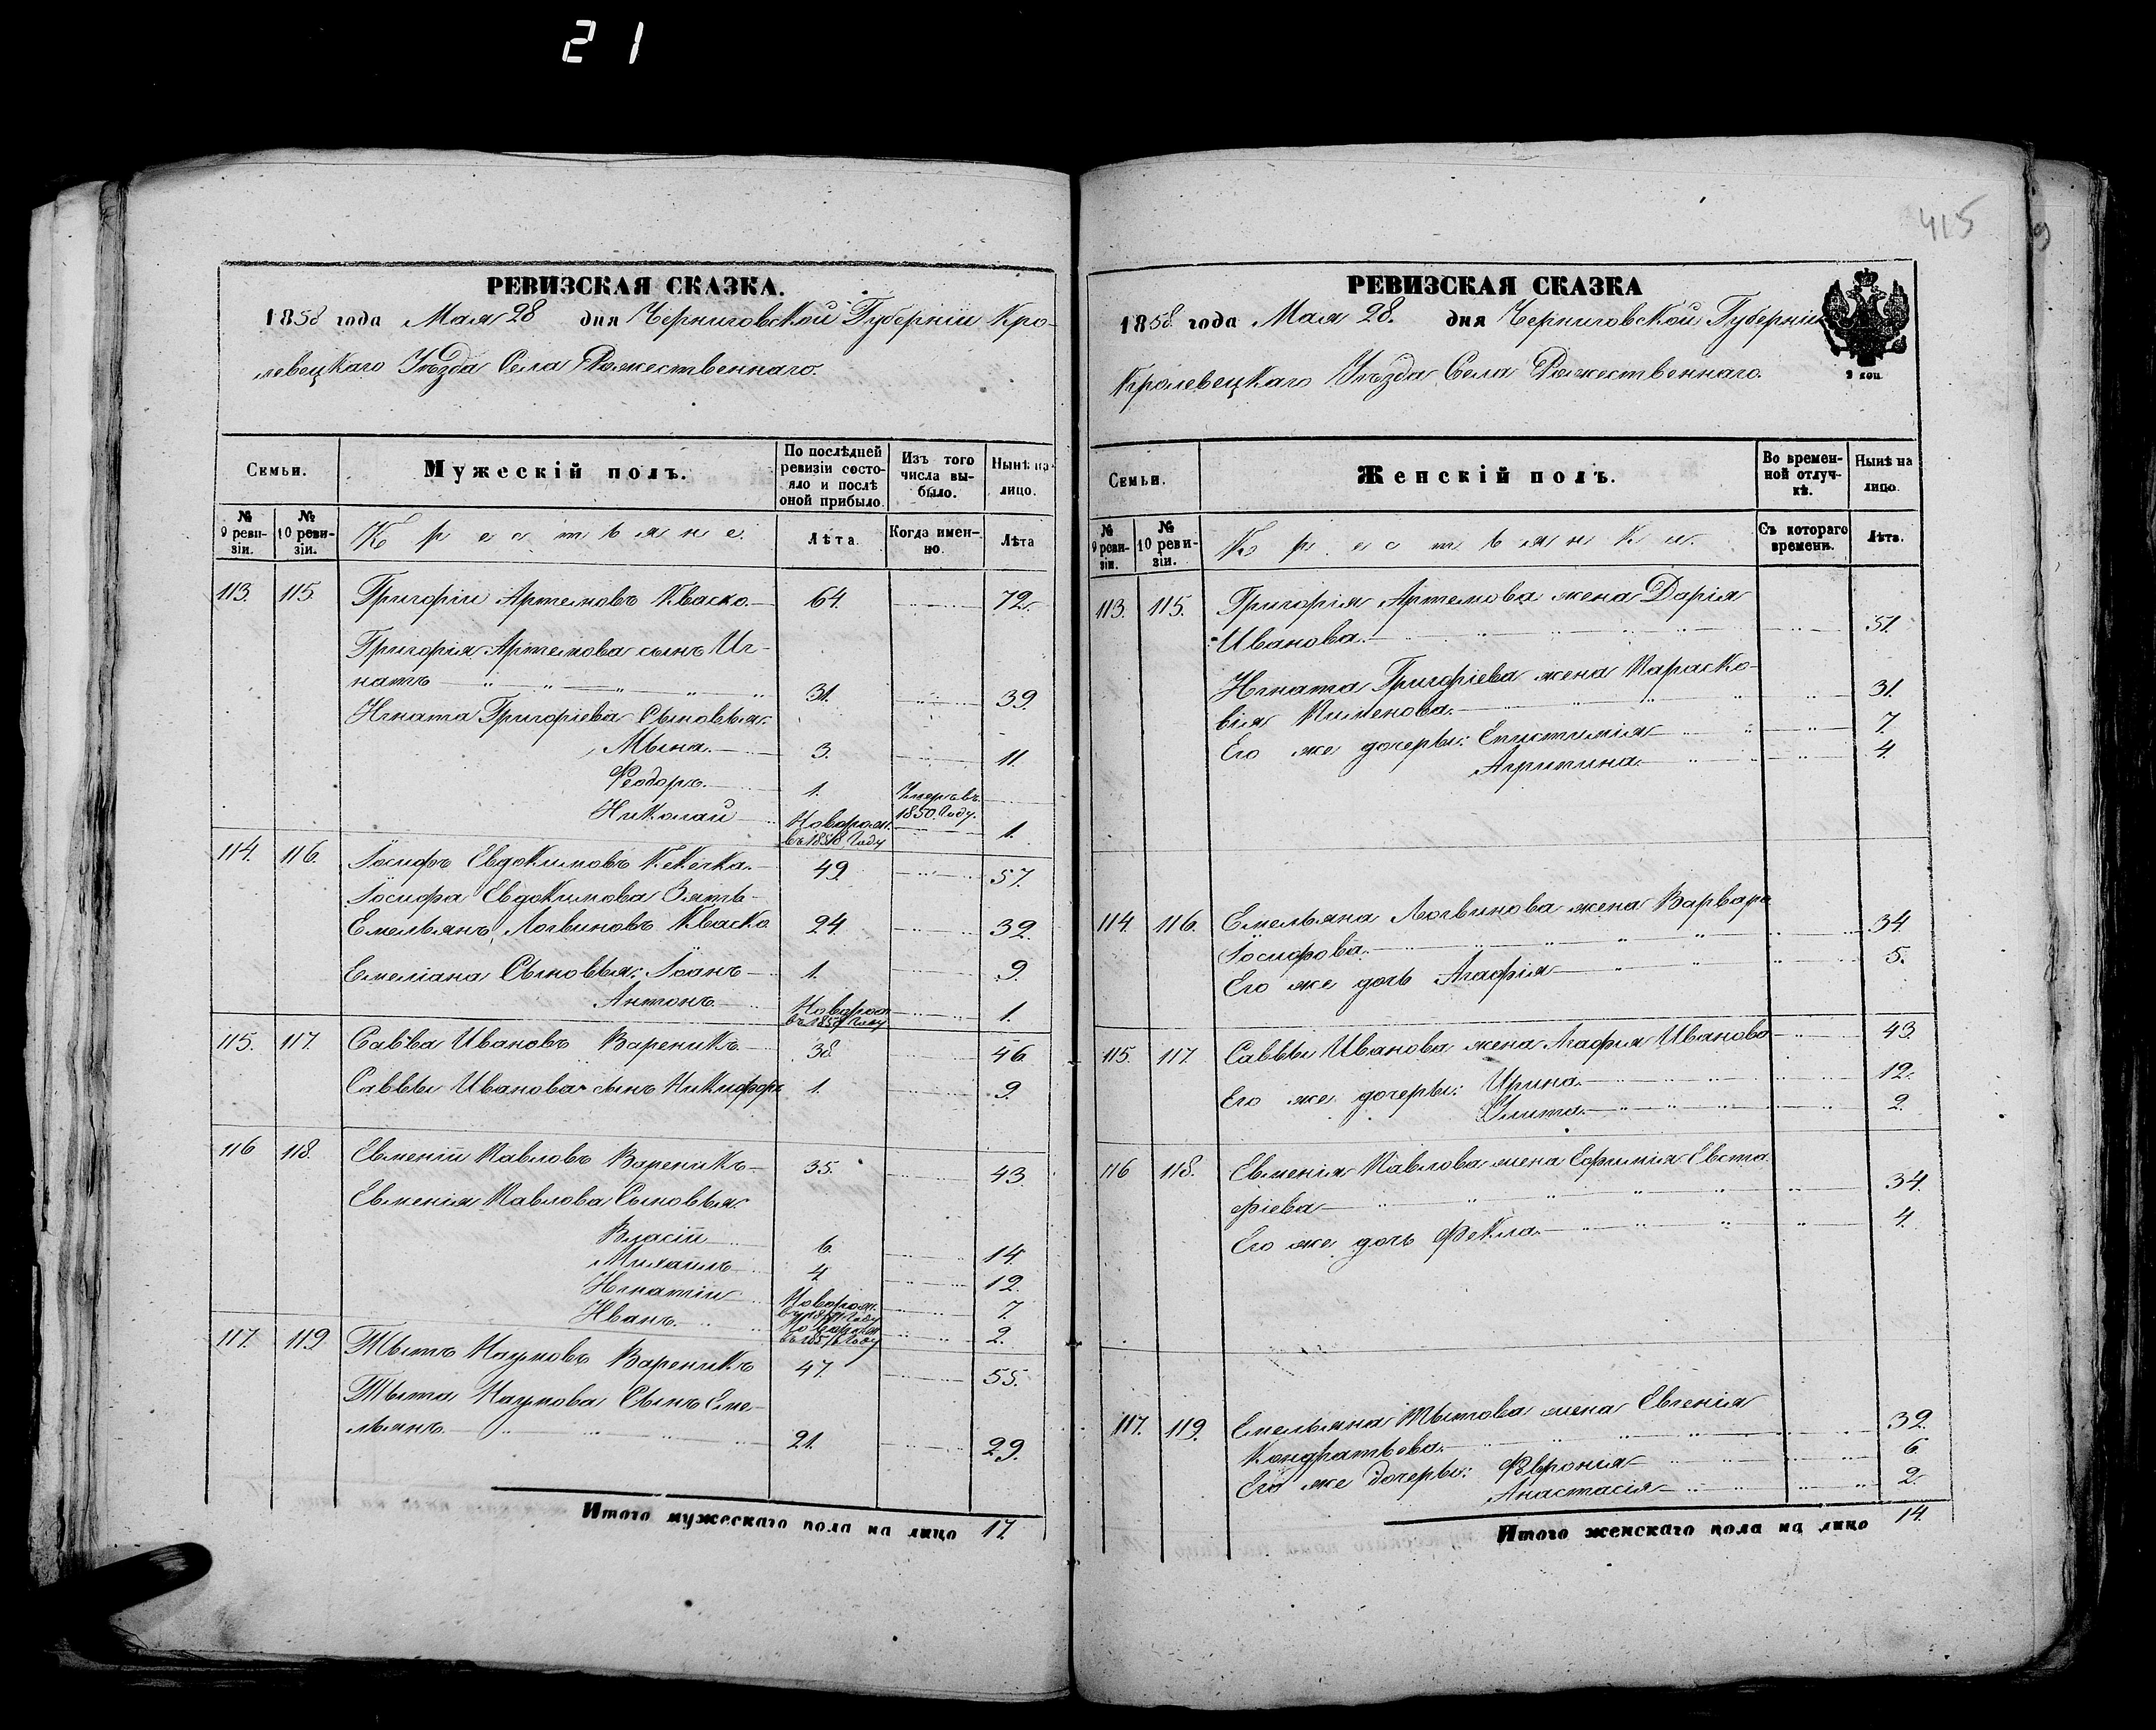 21
415
РЕВИЗСКАЯ СКАЗКА.
1858 года Мая 28 дня Черниговской Губерніи Кро-
левецкаго Уѣзда Села Рожественнаго.
Семьи.
Мужескій полъ.
По послѣдней ревизіи состо-яло и послѣ оной прибыло.
Изъ того числа вы-было.
Нынѣ на-лицо.
№ 9 реви-зіи.
№ 10 реви-зіи.
Крестьяне.
Лѣта.
Когда имен-но.
Лѣта
113. 115. Григорій Артемовъ Кваско. 64. 72.
Григорія Артемова сынъ Иг-
натъ 31. 39
Игната Григоріева Сыновья:
Мына. 3. 11.
Феодоръ. 1. Умеръ въ 1850 Году.
Николай Новорож. въ 1858 Году 1.
114. 116. Іосифъ Евдокимовъ Кекечка. 49. 57.
Іосифа Евдокимова Зять
Емельянъ Логвиновъ Кваско 24. 32.
Емеліана Сыновья: Іоанъ 1. 9.
Антонъ. Новорож. Году 1.
115. 117. Савва Ивановъ Вареникъ 38. 46
Саввы Иванова сынъ Никифоръ 1. 9.
116 118. Евменій Павловъ Вареникъ 35. 43
Евменія Павлова Сыновья:
Власій 6. 14.
Михаилъ 4. 12.
Игнатій Новорож. Году 7.
Иванъ. Году 2.
117. 119. Тытъ Наумовъ Вареникъ 47. 55.
Тыта Наумова Сынъ Еме-
льянъ 21. 29.
Итого мужескаго пола на лицо 17.
РЕВИЗСКАЯ СКАЗКА
1858 года Мая 28. дня Черниговской Губерніи
Кролевецкаго Уѣзда Села Рожественнаго.
Семьи.
Женскій полъ.
Во времен-ной отлуч-кѣ.
Нынѣ на лицо.
№ 9 реви-зіи.
№ 10 реви-зіи.
Крестьянки.
Съ котораго времени.
Лѣта.
113. 115. Григорія Артемова жена Дарія
Иванова. 51.
Игната Григоріева жена Параско-
вія Пименова. 31.
Его же дочеры: Епистимія 7.
Агрипина. 4.
114. 116. Емельяна Логвинова жена Варвара
Іосифова. 34.
Его же дочь Агафія 5.
115. 117. Саввы Иванова жена Агафія Иванова 43.
Его же дочеры: Ирина. 12.
Улита. 2.
116 118. Евменія Павлова жена Ефимія Евста-
фіева 34.
Его же дочь Фекла. 4.
117. 119. Емельяна Тытова жена Евгенія
Кондратьева. 32.
Его же Дочеры: Февронія 6.
Анастасія 2.
Итого женскаго пола на лицо 14.